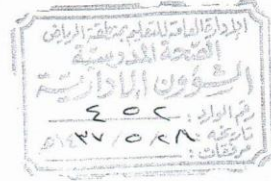 الإدارة العامة للتعليم بمنطقة الرياض
الصحة المدرسية
الشؤون الإدارية
رقم الوارد : ٤٥٢
تاريخه : ٢٨ / ٥ / ١٤٣٧هـ
مرفقات :